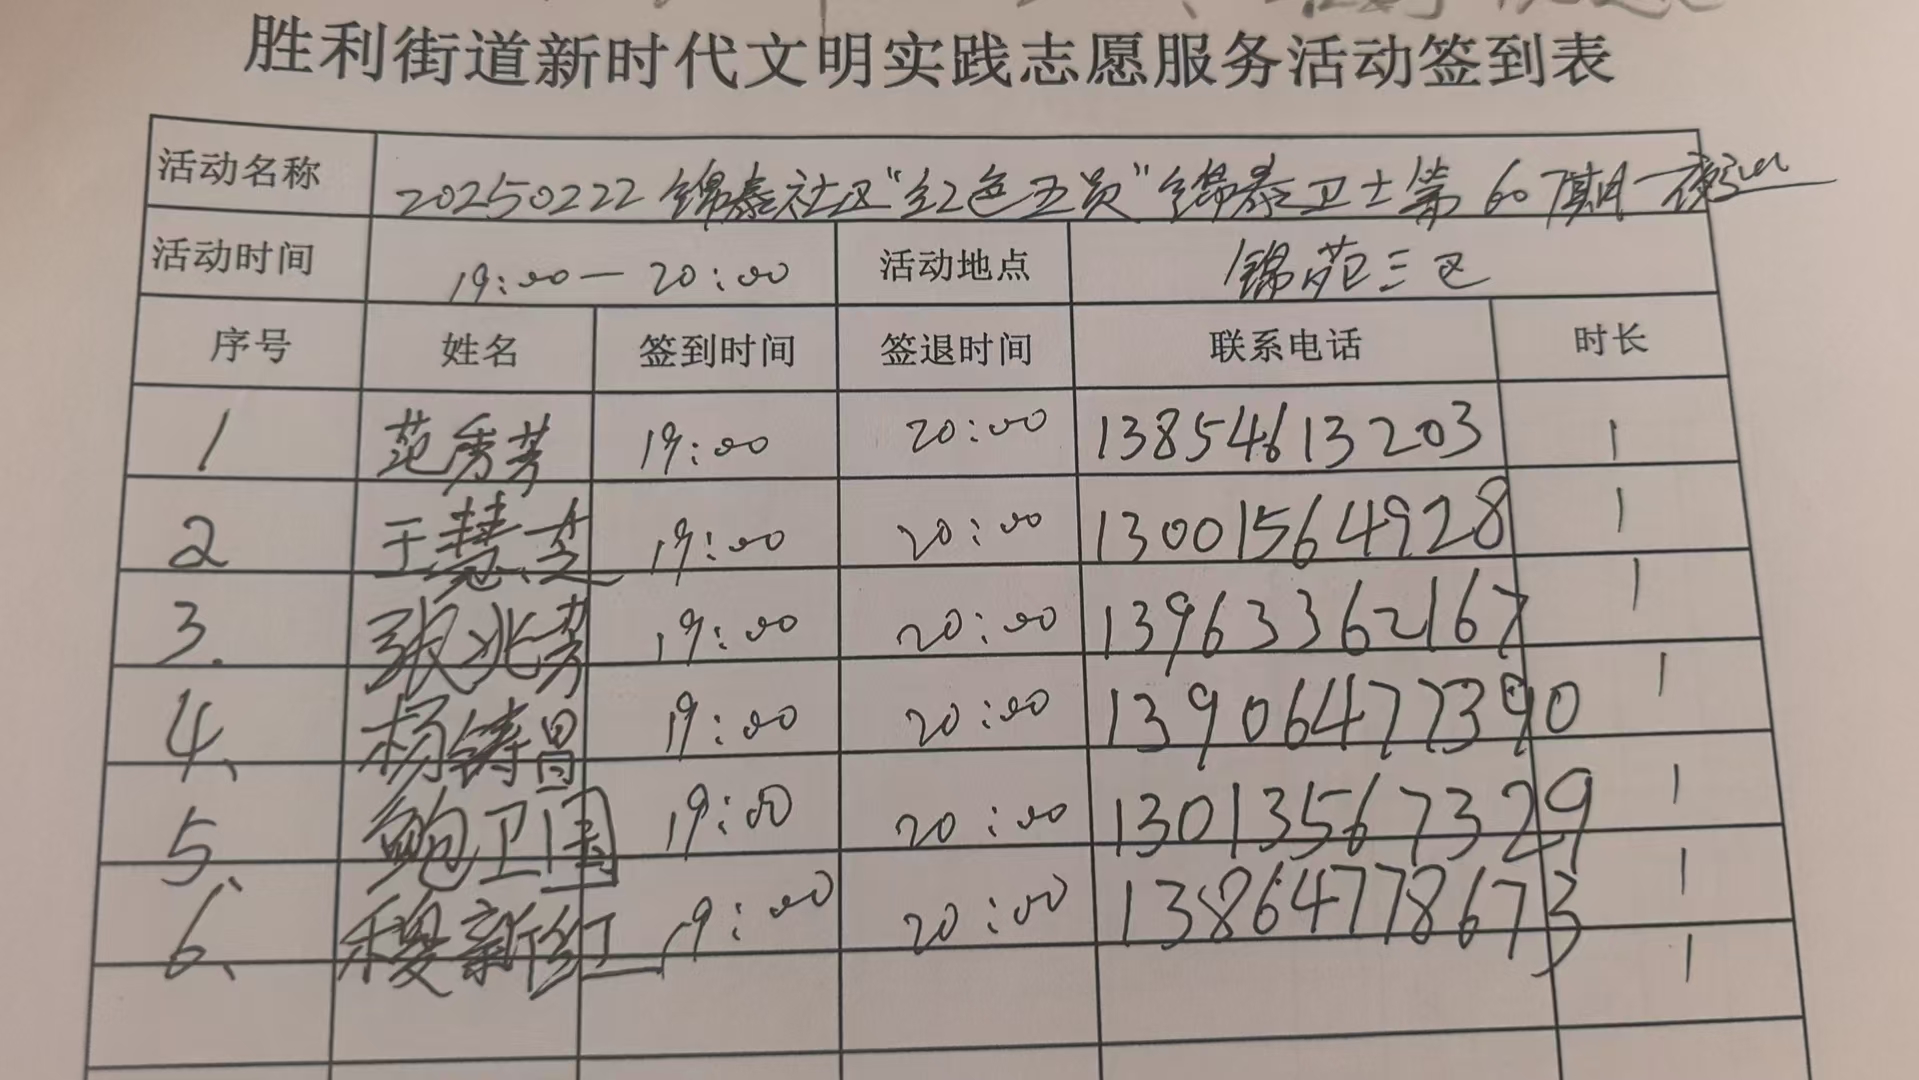 胜利街道新时代文明实践志愿服务活动签到表
活动名称 20250222锦泰社区“红色五员”锦泰卫士第60期—夜巡
活动时间 19:00—20:00 活动地点 锦苑三区
序号 姓名 签到时间 签退时间 联系电话 时长
1 范秀芳 19:00 20:00 13854613203 1
2 于慧芝 19:00 20:00 13001564928 1
3. 张兆芳 19:00 20:00 13963362167 1
4、 杨铸昌 19:00 20:00 13906477390 1
5、 鲍卫国 19:00 20:00 13013567329 1
6、 穆新红 19:00 20:00 13864778673 1
1